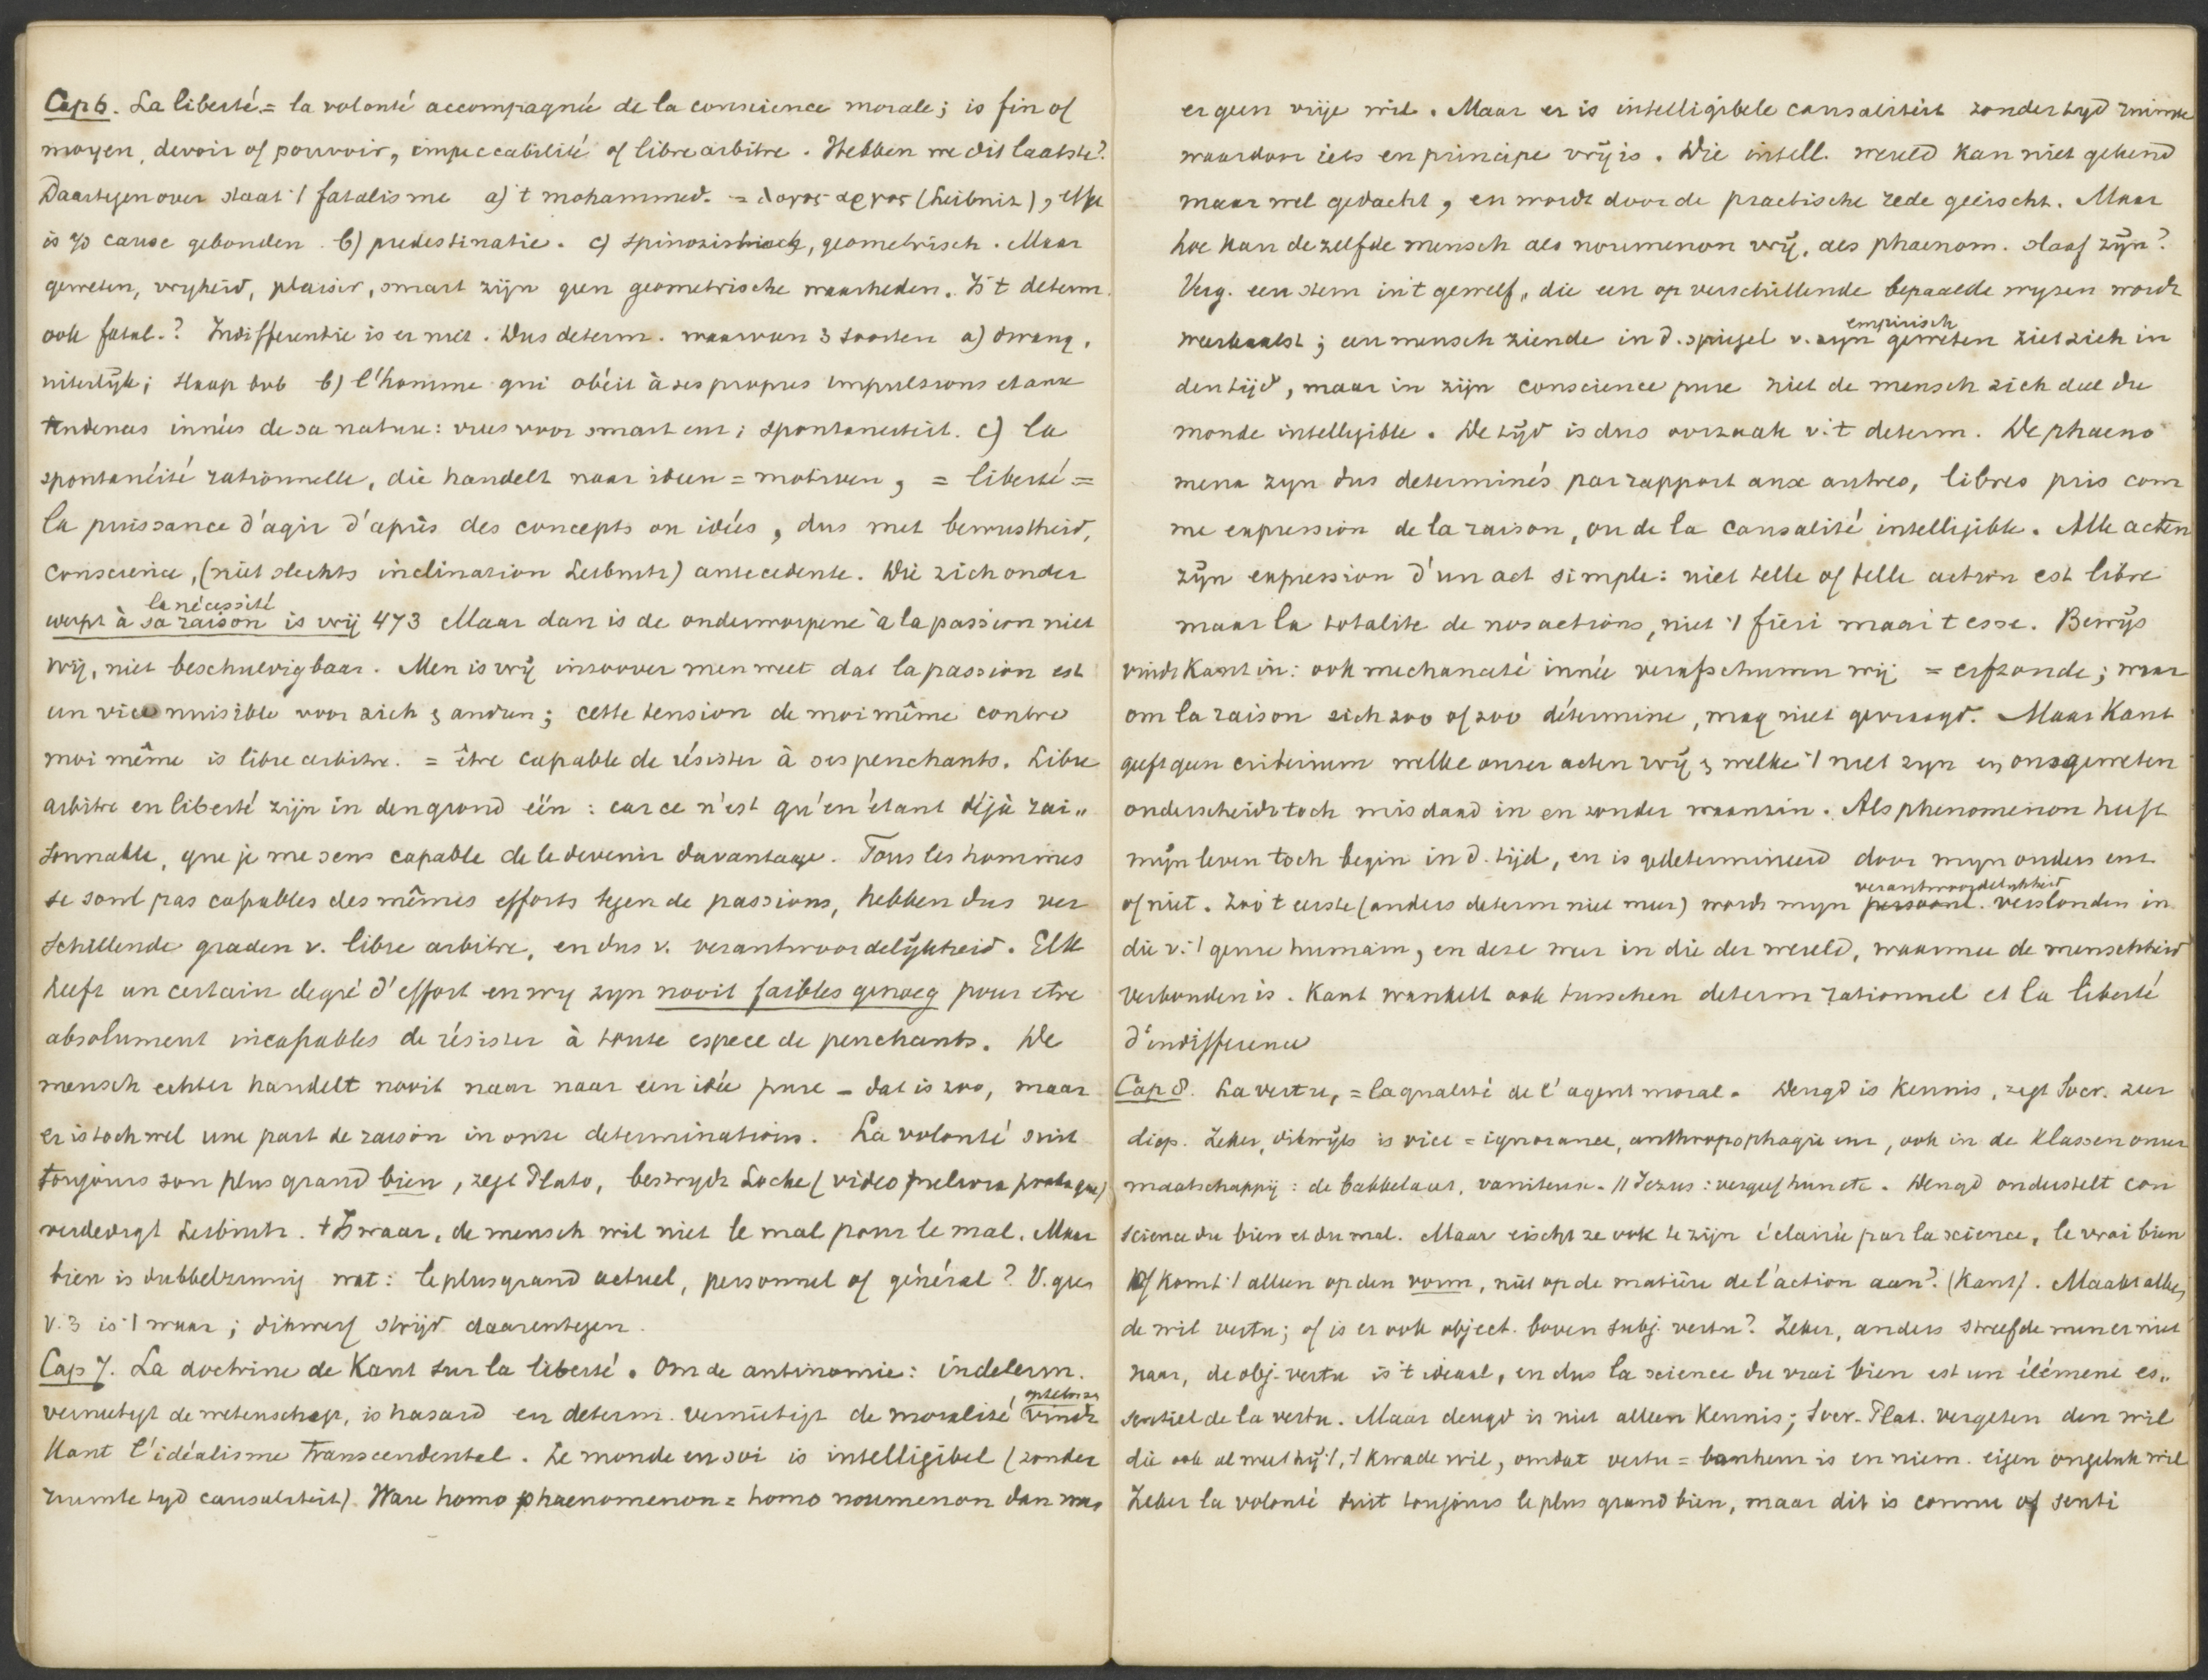 Cap 6. La liberté = la volonté accompagnée de la conscience morale; is fin of
moyen, devoir of pouvoir, impeccabilité of libre arbitre. Hebben we dit laatste?
Daartegenover staat 't fatalisme a) 't mohammed. = λογος αργος (Leibnitz), effet
is zo cause gebonden. b) predestinatie. c) Spinozistisch, geometrisch. Maar
geweten, vryheid, plaisir, smart zijn geen geometrische waarheden. Is 't determ.
ook fatal.? Indifferentie is er niet. Dus determ. waarvan 3 soorten a) dwang,
uiterlijk; b) l'homme qui obéit à ses propres impulsions et aux
tendences innées de sa nature: vrees voor smart enz; spontaneiteit. c) la
spontanéité rationnelle, die handelt naar ideen = motiven, = liberté =
la puissance d'agir d'après des concepts ou idées, dus met bewustheid,
conscience, (niet slechts inclination Leibnitz) antecedente. Wie zich onder
la nécessité
werpt à sa raison is vrij 473 Maar dan is de onderworpene à la passion niet
vrij, niet beschuldigbaar. Men is vrij inzoover men weet dat la passion est
un vice nuisible voor zich & andren; cette tension de moi même contre
moi même is libre arbitre. = être capable de résister à ses penchants. Libre
arbitre en liberté zijn in den grond één: car ce n'est qu'en étant déjà rai„
sonnable, que je me sens capable de le devenir davantage. Tous les hommes
se sont pas capables des mêmes efforts tegen de passions, hebben dus ver
schillende graden v. libre arbitre, en dus v. verantwoordelijkheid. Elk
heeft un certain degré d'effort en wy zyn nooit faibles genoeg pour etre
absolument incapables de résister à toute espece de penchants. De
mensch echter handelt nooit naar naar een idée pure – dat is zoo, maar
er is toch wel une part de raison in onze determinations. La volonté suit
toujours son plus grand bien, zegt Plato, bestrydt Locke (video meliora proboque)
verdedigt Leibnitz. 't Is waar, de mensch wil niet le mal pour le mal. Maar
bien is dubbelzinnig wat: le plus grand actuel, personnel of général? V. ges
v. 3 is 't waar; dikwerf strijd daarentegen.
Cap 7. La doctrine de Kant sur la liberté. Om de antinomie: indeterm.
, oplossen
vernietigt de wetenschap, is hasard en determ. vernietigt de moralité vindt
Kant l'idéalisme transcendental. Le monde en soi is intelligibel (zonder
ruimte tyd causaliteit). Ware homo phaenomenon = homo noumenon dan was
er geen vrije wil. Maar er is intelligibele causaliteit zonder tyd ruimte
waardoor iets en principe vrij is. Die intell. wereld kan niet gekend
maar wel gedacht, en wordt door de practische rede geëischt. Maar
hoe kan dezelfde mensch als noumenon vrij, als phaenom. slaaf zijn?
Verg. een stem in 't gewelf, die een op verschillende bepaalde wyzen wordt
empirisch
weerkaatst; een mensch ziende in d. spiegel v. zyn geweten ziet zich in
den tijd, maar in zijn conscience pure ziet de mensch zich deel du
monde intelligible. De tijd is dus oorzaak v. 't determ. De phaeno
mena zyn dus determinés par rapport aux autres, libres pris com
me expression de la raison, ou de la causalité intelligible. Alle acten
zijn expression d'un act simple: niet telle of telle action est libre
maar la totalite de nos actions, niet 't fieri maar 't esse. Bewijs
vindt Kant in: ook mechanceté innée verafschuwen wij = erfzonde; waar
om la raison zich zoo of zoo détermine, mag niet gevraagd. Maar Kant
geeft geen criterium welke onzer acten vrij & welke 't niet zyn en ons geweten
onderscheidt toch misdaad in en zonder waanzin. Als phenomenon heeft
mijn leven toch begin in d. tijd, en is gedetermineerd door myn ouders enz
verantwoordelykheid
of niet. Zoo 't eerste (anders determ niet meer) wordt myn persoonl. verslonden in
die v. 't genre humain, en deze weer in die der wereld, waarmee de menschheid
verbonden is. Kant wankelt ook tusschen determ rationnel et la liberté
d'indifference
Cap 8. La vertu, = la qualité de l'agent moral. Deugd is kennis, zegt Socr. zeer
diep. Zeker, dikwijls is vice = ignorance, anthropophagie enz, ook in de klassen onzer
maatschappij: de babbelaar, vaniteuse. // Jezus: vergeef hun etc. Deugd onderstelt con
science du bien et du mal. Maar eischt ze ook te zijn éclairée par la science, le vrai bien
Of komt 't alleen op den vorm, niet op de matière de l'action aan? (Kant). Maakt alleen
de wil vertu; of is er ook object. boven subj. vertu? Zeker, anders streefde men er niet
naar, de obj. vertu is 't ideaal, en dus la science du vrai bien est un élément es„
sentiel de la vertu. Maar deugd is niet alleen kennis; Socr. Plat. vergeten den wil
die ook al weet hij 't, 't kwade wil, omdat vertu = bonheur is en niem. eigen ongeluk wil
Zeker la volonté suit toujours le plus grand bien, maar dit is connu of senti